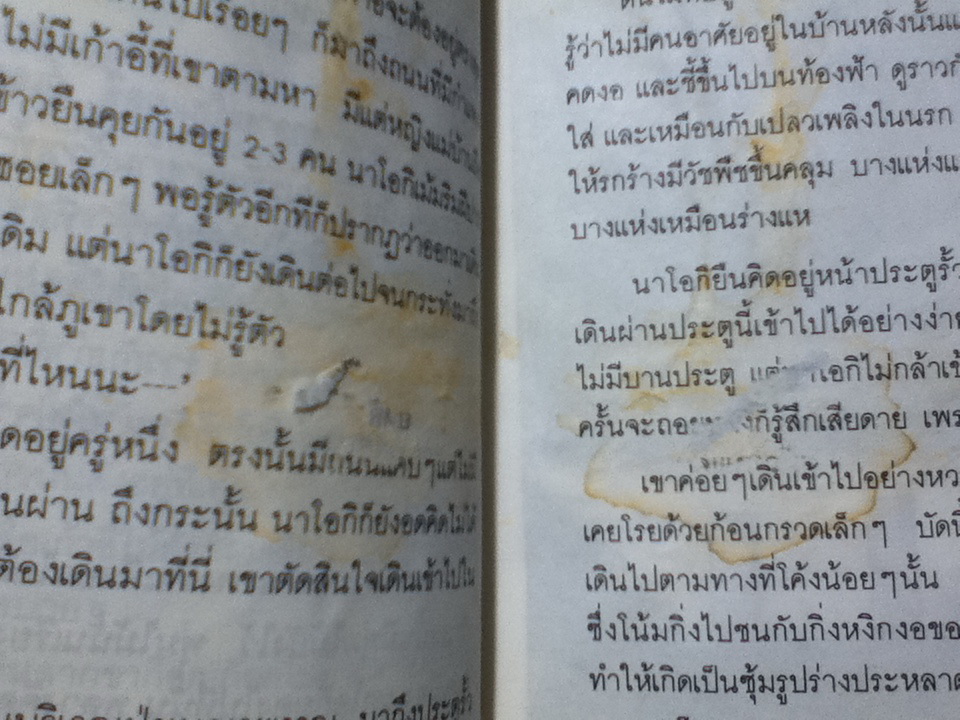 ไปเรื่อยๆ ก็มาถึงถนนที่มีกำแพง
ไม่มีเก้าอี้ที่เขาตามหา มีแต่หญิงแม่บ้าน
ข้าวยืนคุยกันอยู่ 2-3 คน นาโอกิเม้มริมฝีปาก
ซอยเล็กๆ พอรู้ตัวอีกทีก็ปรากฏว่าออกมา
เดิม แต่นาโอกิก็ยังเดินต่อไปจนกระทั่งมาถึง
ใกล้ภูเขาโดยไม่รู้ตัว
ที่ไหนนะ---'
ดอยู่ครู่หนึ่ง ตรงนั้นมีถนนแคบๆแต่ไม่มี
นผ่าน ถึงกระนั้น นาโอกิก็ยังอดคิดไม่ได้
ต้องเดินมาที่นี่ เขาตัดสินใจเดินเข้าไปใน
มาถึงประตูรั้ว
รู้ว่าไม่มีคนอาศัยอยู่ในบ้านหลังนั้น
คดงอ และชี้ขึ้นไปบนท้องฟ้า ดูราวกั
ใส่ และเหมือนกับเปลวเพลิงในนรก
ให้รกร้างมีวัชพืชขึ้นคลุม บางแห่ง
บางแห่งเหมือนร่างแห
นาโอกิยืนคิดอยู่หน้าประตูรั้ว
เดินผ่านประตูนี้เข้าไปได้อย่างง่าย
ไม่มีบานประตู แต่ เอกิไม่กล้าเข้
ครั้นจะถอ งก็รู้สึกเสียดาย เพร
เขาค่อยๆเดินเข้าไปอย่างหว
เคยโรยด้วยก้อนกรวดเล็กๆ บัดนี้
เดินไปตามทางที่โค้งน้อยๆนั้น
ซึ่งโน้มกิ่งไปชนกับกิ่งหงิกงอขอ
ทำให้เกิดเป็นซุ้มรูปร่างประหลาด